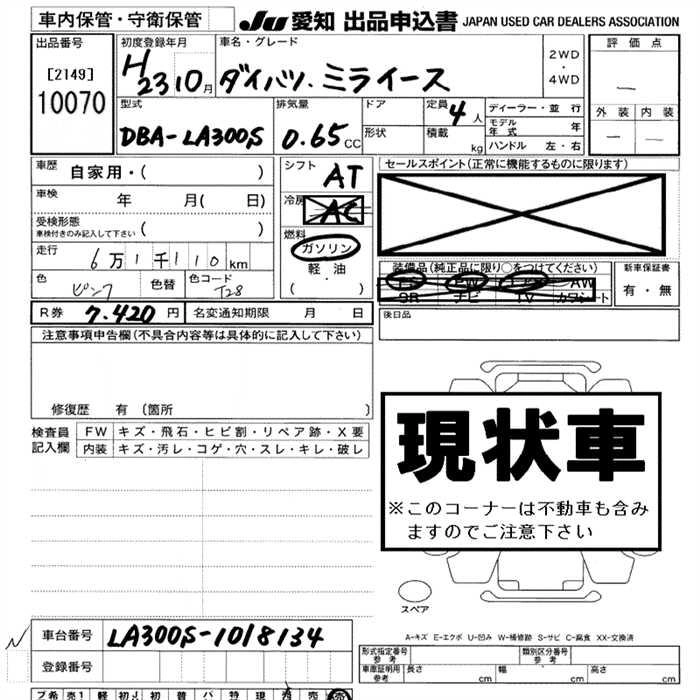 車内保管・守衛保管
JU 愛知 出品申込書 JAPAN USED CAR DEALERS ASSOCIATION
出品番号
[2149]
10070
初度登録年月
H 23 10月
車名・グレード
ダイハツ. ミライース
2WD
・
4WD
評価点
—
外装 内装
— —
型式
DBA-LA300S
排気量
0.65CC
ドア
形状
定員 4人
積載 kg
ディーラー・並行
モデル年式 年
ハンドル 左・右
車歴 自家用・( )
車検 年 月( 日)
受検形態
車検付きのみ記入して下さい ( )
走行 6万1千110km
色 ピンク 色替 色コード T28
シフト AT
冷房 AC
燃料
ガソリン
軽油
( )
セールスポイント(正常に機能するものに限ります)
装備品(純正品に限り○をつけてください)
PS PW エアB AW
SR ナビ TV カワシート
新車保証書
有・無
R券 7.420円 名変通知期限 月 日
後日品
注意事項申告欄(不具合内容等は具体的に記入して下さい)
修復歴 有(箇所 )
検査員記入欄
FW キズ・飛石・ヒビ割・リペア跡・X要
内装 キズ・汚レ・コゲ・穴・スレ・キレ・破レ
現状車
※このコーナーは不動車も含み
ますのでご注意下さい
スペア
A-キズ E-エクボ U-凹み W-補修跡 S-サビ C-腐食 XX-交換済
車台番号 LA300S-1018134
登録番号
形式指定番号 参考 類別区分番号 参考
車庫証明用 参考 長さ cm 幅 cm 高さ cm